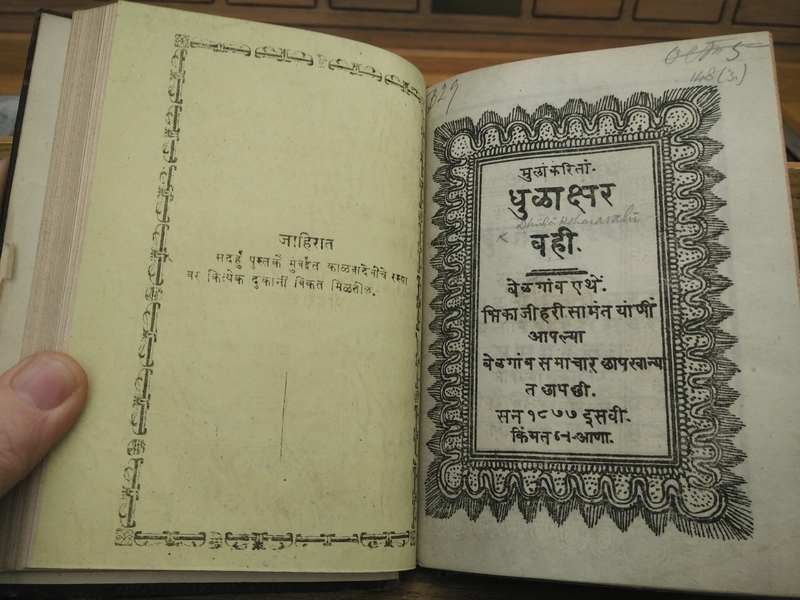 जाहिरात
सदर्हु पुस्तकें मुंबईत काळबादेवीचे रस्त्या
वर कित्येक दुकानीं विकत मिळतील.
मुलांकरितां.
धुळाक्षर
वही.
बेळगांव एथें.
भिकाजी हरी सामंत यांणीं
आपल्या
बेळगांव समाचार छापखान्या
त छापली.
सन १८७७ इसवी.
किंमत आणा.